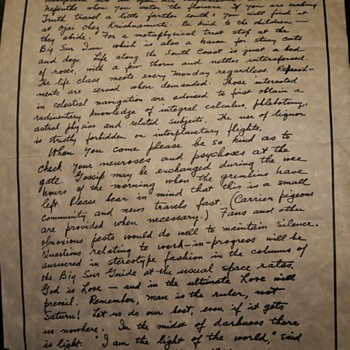 Repeat when you make the planes. If you are seeking
Truth travel a little farther south: you will find it
at Ojai chez Krishnamurti. Be kind to the children —
they abide. For a metaphysical treat stop at the
Big Sur Inn which is also a haven for stray cats
and dogs. Life along the South Coast is just a bed
of roses, with a few thorns and nettles interspersed.
The life class meets every Monday regardless. Refresh-
ments are served when demanded. Those interested
in celestial navigation are advised to first obtain a
rudimentary knowledge of integral calculus, phlebotomy,
astral physics and related subjects. The use of liquor
is strictly forbidden on interplanetary flights.
When you come please be so kind as to
check your neuroses and psychoses at the
gate. Gossip may be exchanged during the wee
hours of the morning when the gremlins have
left. Please bear in mind that this is a small
community and news travels fast. (Carrier pigeons
are provided when necessary.) Fans and other
obnoxious pests would do well to maintain silence.
Questions relating to work-in-progress will be
answered in stereotype fashion in the columns of
the Big Sur Guide at the usual space rates.
God is Love — and in the ultimate Love will
prevail. Remember, man is the ruler, not
Saturn! Let us do our best, even if it gets
us nowhere. In the midst of darkness there
is light. "I am the light of the world," said